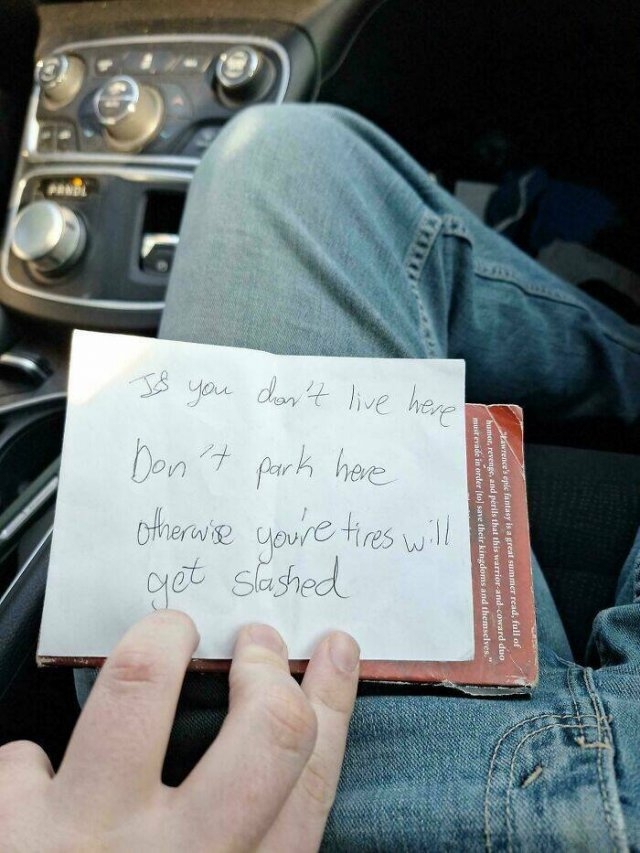 If you don't live here
Don't park here
otherwise you're tires will
get slashed
"Lawrence's epic fantasy is a great summer read, full of
humor, revenge, and perils that this warrior-and-coward duo
must evade in order [to] save their kingdoms and themselves."
PRNDL